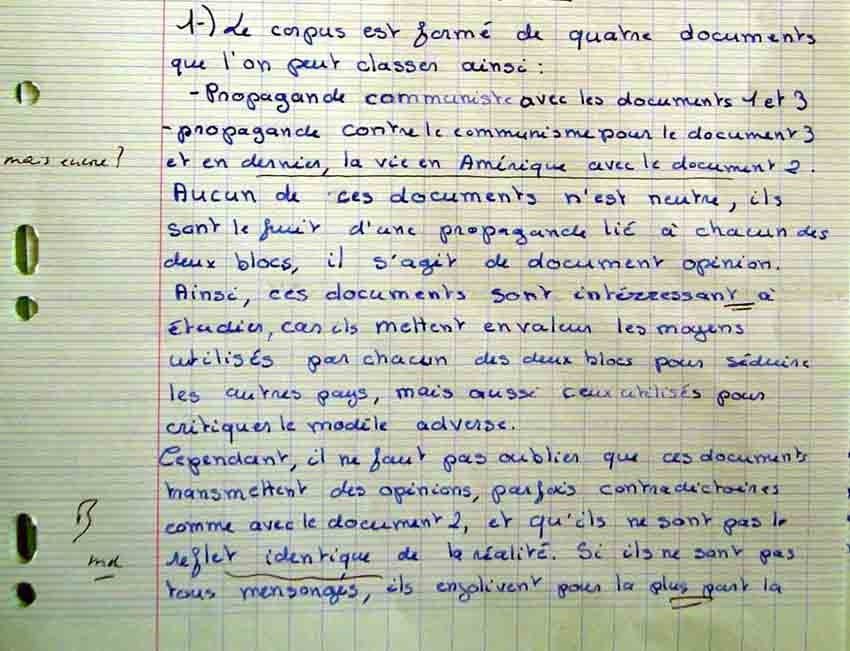 1-) Le corpus est formé de quatre documents
que l'on peut classer ainsi :
- Propagande communiste avec les documents 1 et 3
- propagande contre le communisme pour le document 3
mais encore ?
et en dernier, la vie en Amérique avec le document 2.
Aucun de ces documents n'est neutre, ils
sont le fruit d'une propagande lié à chacun des
deux blocs, il s'agit de document opinion.
Ainsi, ces documents sont intézressant à
étudier, car ils mettent en valeur les moyens
utilisés par chacun des deux blocs pour séduire
les autres pays, mais aussi ceux utilisés pour
critiquer le modèle adverse.
Cependant, il ne faut pas oublier que ces documents
transmettent des opinions, parfois contradictoires
comme avec le document 2, et qu'ils ne sont pas le
md
reflet identique de la réalité. Si ils ne sont pas
tous mensongés, ils enjolivent pour la plus part la